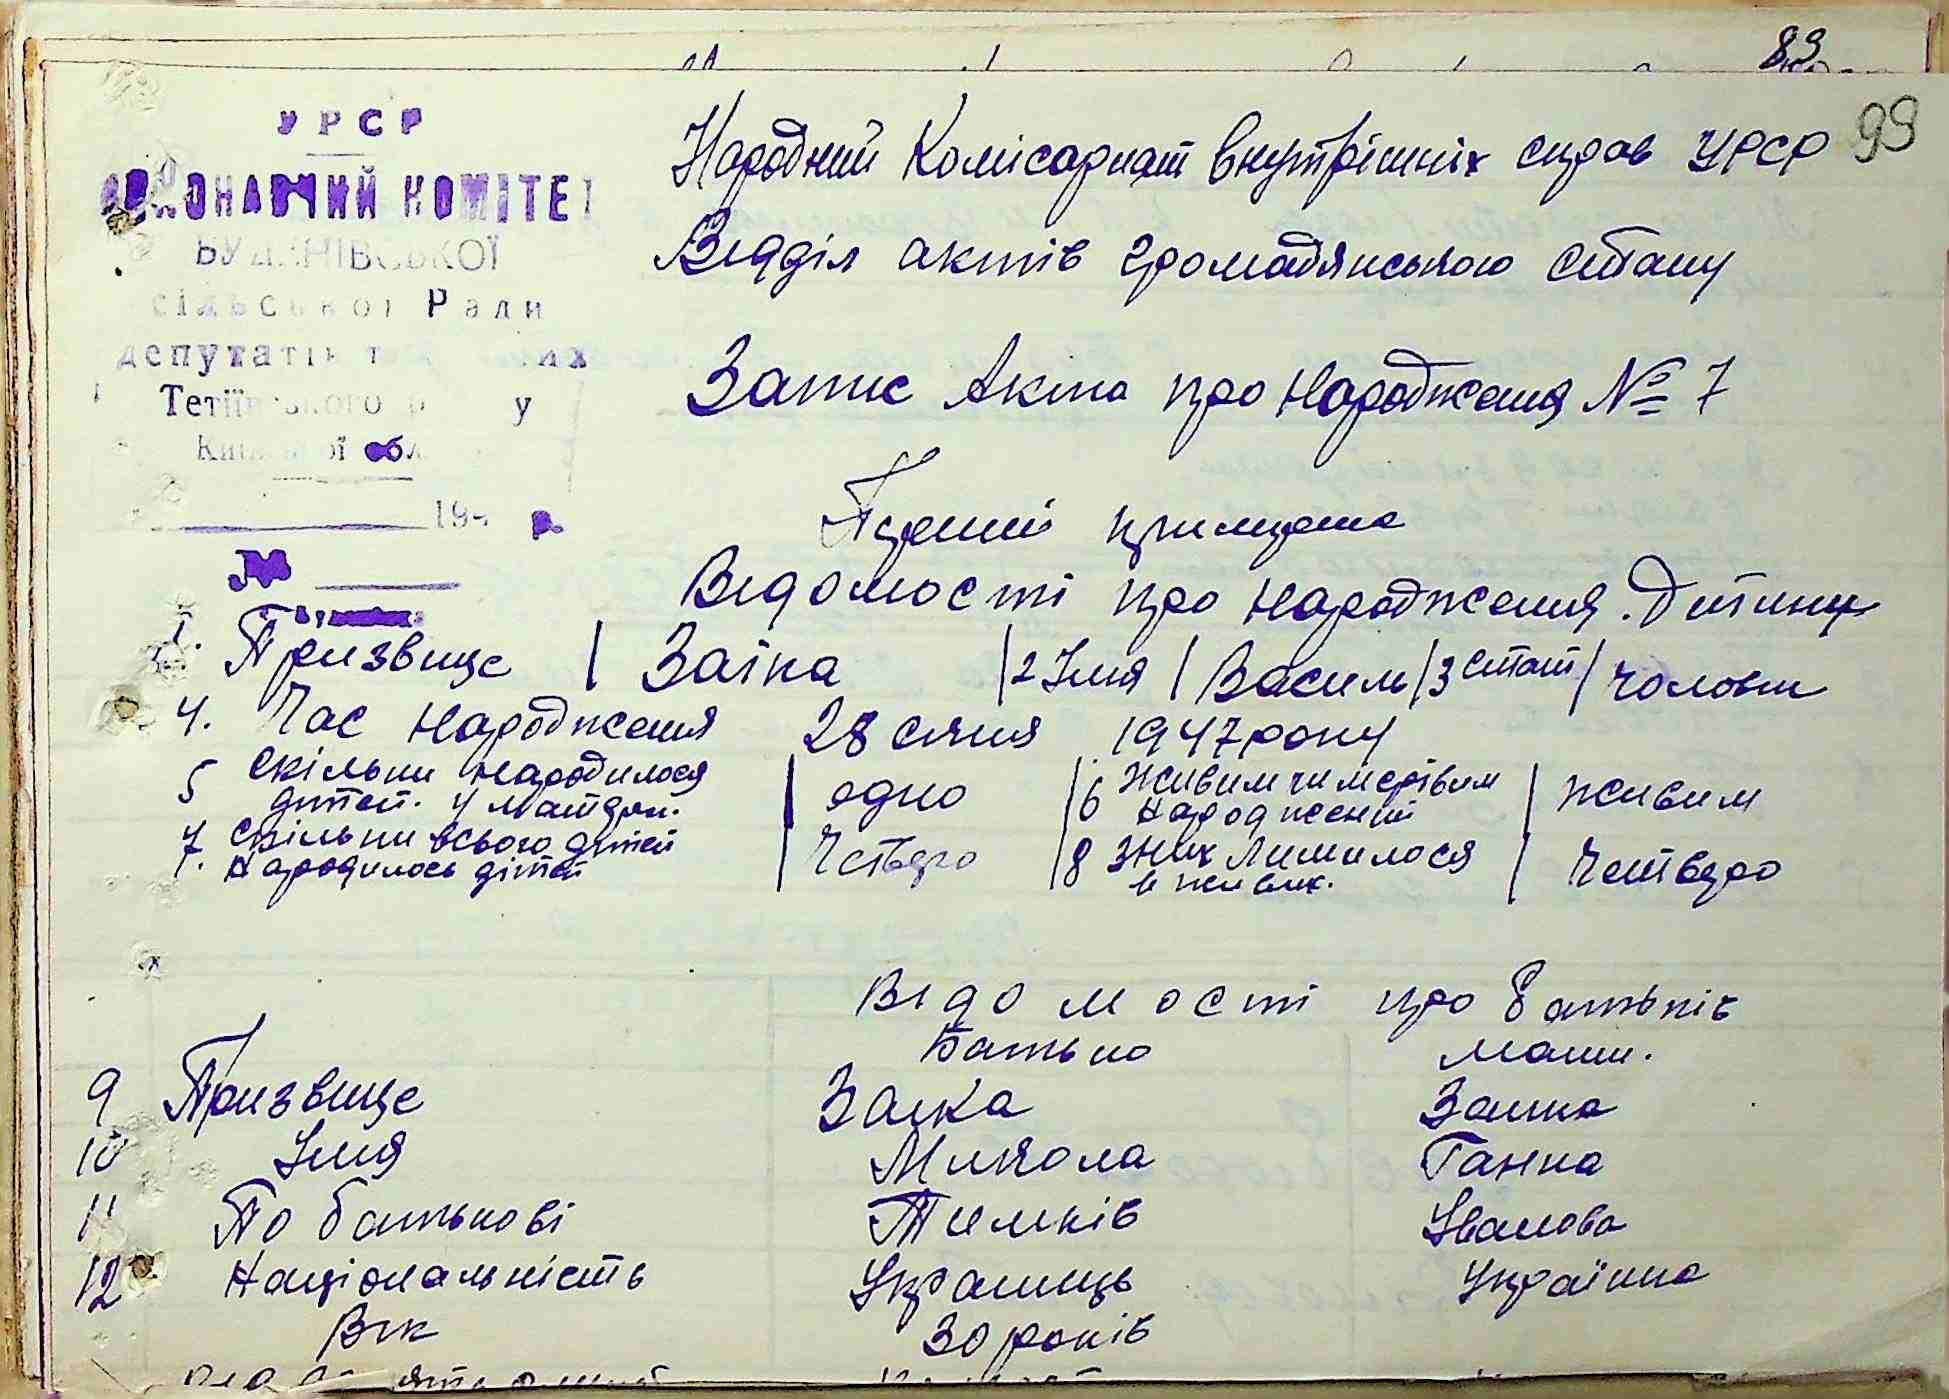 83
99
УРСР
ВИКОНАВЧИЙ КОМІТЕТ
БУДЕНІВСЬКОЇ
сільської Ради
депутатів
Тетіївського р у
Київської обл
194 р.
№
Народний Комісаріат внутрішніх справ УРСР
Відділ актів громадянського стану
Запис Акта про народження № 7
Перший примірник
Відомості про народження дитини
1. Призвище | Заїка | 2 Імя | Василь | 3 стат | чоловіч
4. Час народження 28 січня 1947 року
5 Скільки народилося дітей. у матері. | одно | 6 живим чи мертвим народжений | живим
7. Скільки всього дітей народилось дітей | Четверо | 8 З них лишилося в живих. | Четверо
Відомості про батьків
Батько мати.
9 Призвище Заїка Заїка
10 Імя Микола Ганна
11 По батькові Тимків Іванова
12 Національність Українець Українка
Вік 30 років